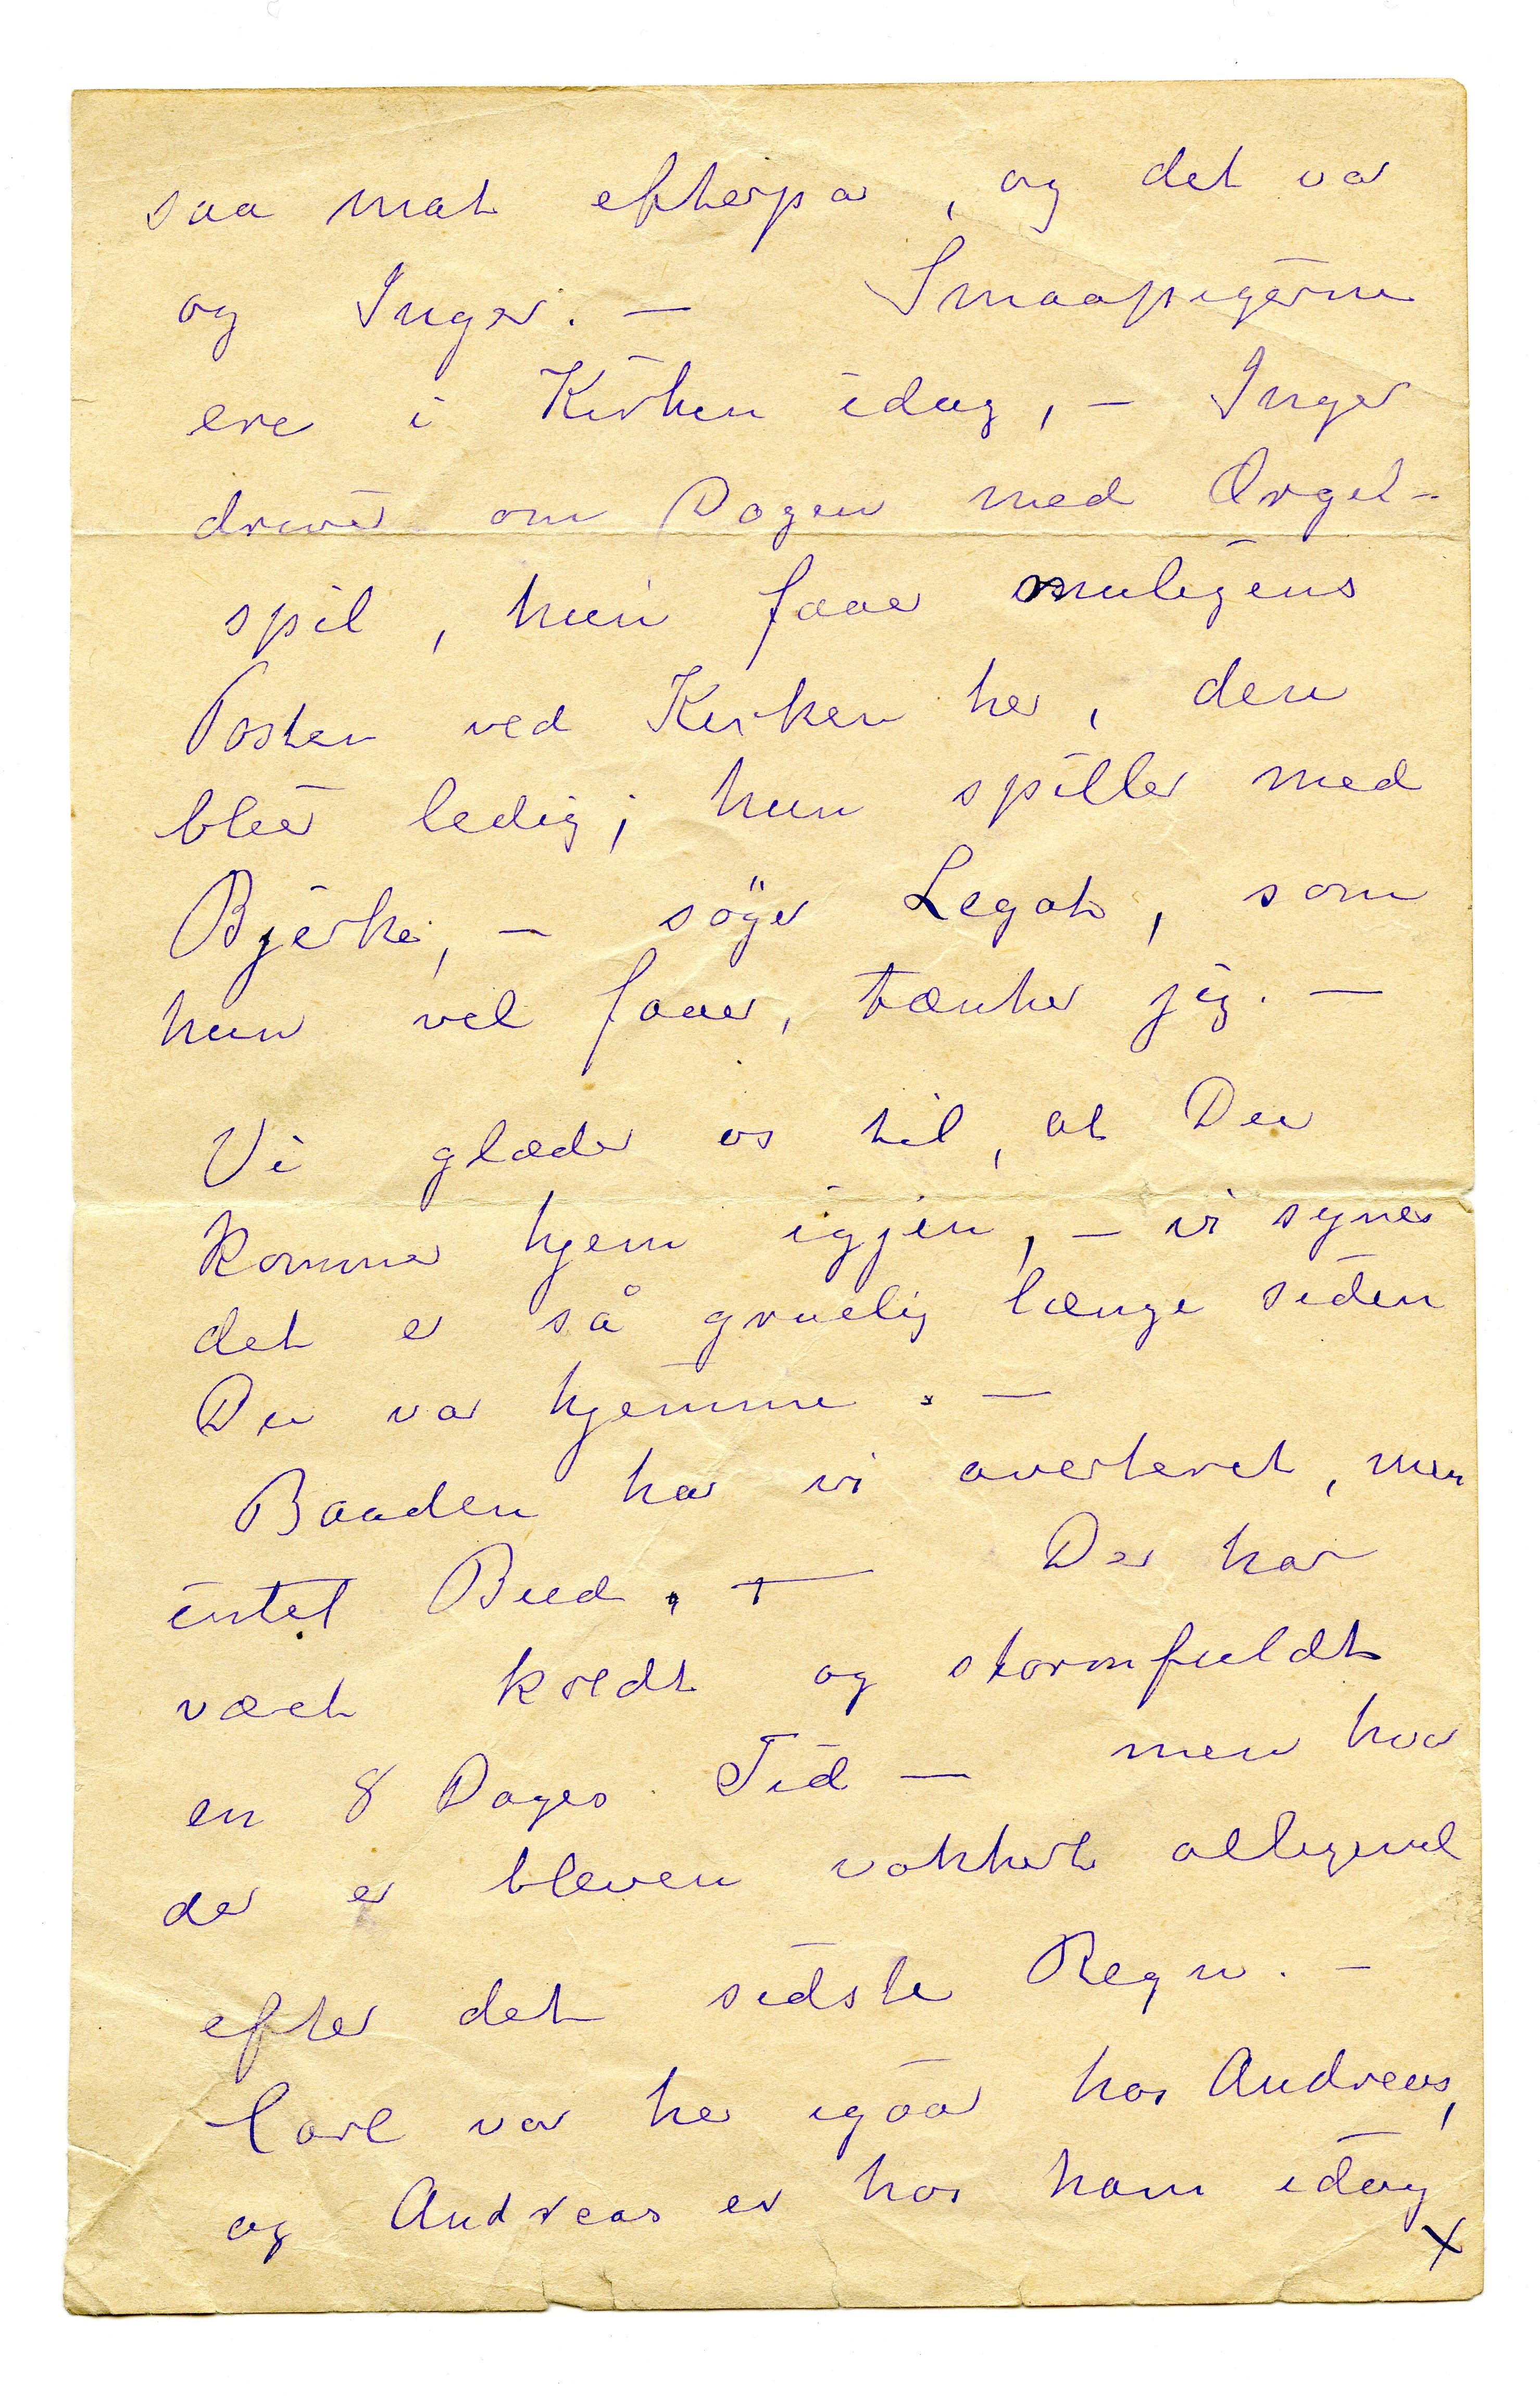 saa mat efterpa, og det var
og Inger. — Smaapigerne
ere i Kirken idag, — Inger
driver om Dagen med Orgel-
spil, hun faaer muligens
Posten ved Kirken her, den
blir ledig; hun spiller med
Bjerke, — söger Legat, som
hun vel faaer, tænker jeg. —
Vi glæder os til, at Du
kommer hjem igjen, — vi synes
det er så gruelig længe siden
Du var hjemme. —
Baaden har vi averteret, men
intet Bud. — Der har
været koldt og stormfuldt
en 8 Dages Tid — men hvor
der er bleven vakkert alligevel
efter det sidste Regn. —
Carl var her igaar hos Andreas,
og Andreas er hos ham idag
x